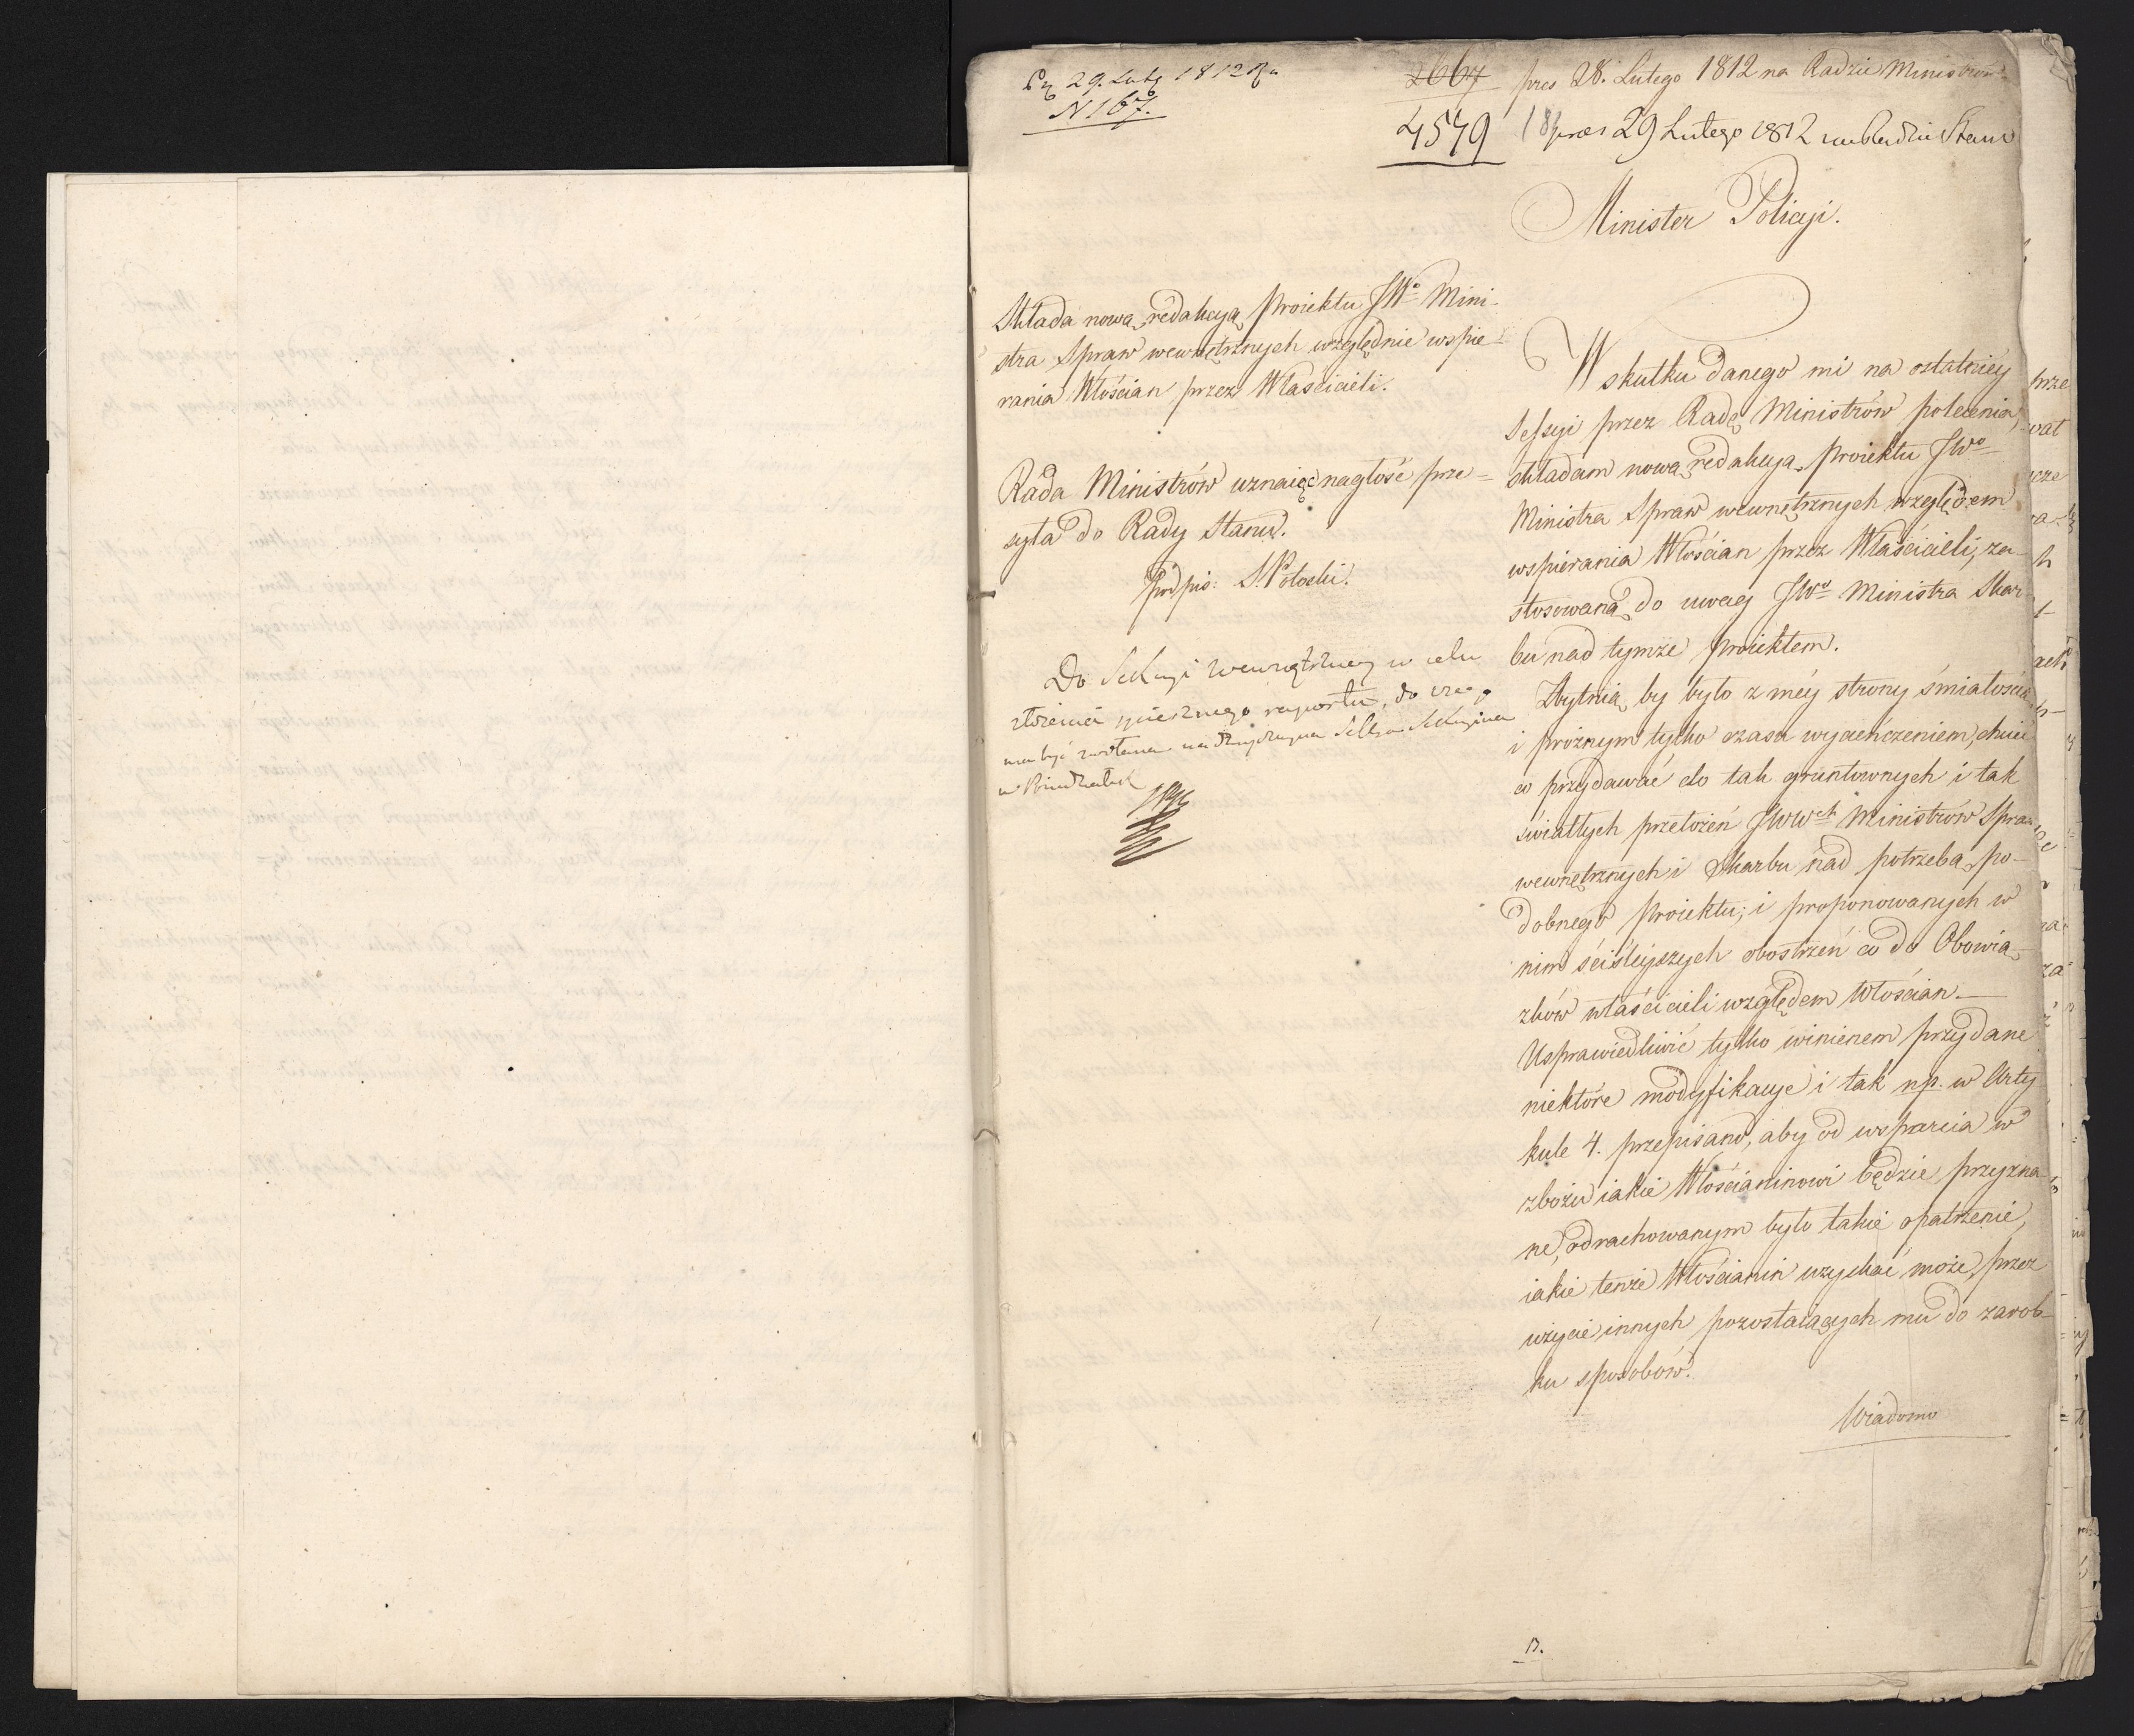 29. Lutg 1812 Ru
N 167.
2667
pres 28. Lutego 1812 na Radzie Ministrów
4579
18 praes 29 Lutego 1812 na Radzie Stanu
Minister Policyi.
Składa nową redakcyą Proiektu JWo Mini-
stra Spraw wewnętrznych względnie wspie-
rania Włościan przez Właścicieli.
Rada Ministrów uznaiąc nagłość prze=
syła do Rady Stanu.
Podpis: S. Potocki.
Do Sekcyi Wewnętrzney w celu
złożenia spiesznego raportu, do czego
ma być
w Poniedziałek
W skutku danego mi na ostatniéy
Sessyi przez Radę Ministrów polecenia,
składam nową redakcyą Proiektu JWo
Ministra Spraw wewnętrznych względem
wspierania Włościan przez Właścicieli, za-
stosowaną do uwag JWo Ministra Skar-
bu nad tymże Proiektem.
Zbytnią by było z méy strony śmiałością
i próżnym tylko czasu wycieńczeniem, chcieć
co przydawać do tak gruntownych i tak
światłych przełożeń JWWch Ministrów Spraw
wewnętrznych i Skarbu nad potrzebą po-
dobnego Proiektu, i proponowanych w
nim ściśleyszych obostrzeń co do Obowią-
zków właścicieli względem Włościan.—
Usprawiedliwić tylko winienem przydane
niektóre modyfikacye i tak np. w Arty
kule 4. przepisano, aby od wsparcia w
zbożu iakie Włościaninowi będzie przyzna
ne, odrachowanym było takie opatrzenie,
iakie tenże Włościanin uzyskać może, przez
użycie innych pozostaiących mu do zarob-
ku sposobów.
Wiadomo
13.